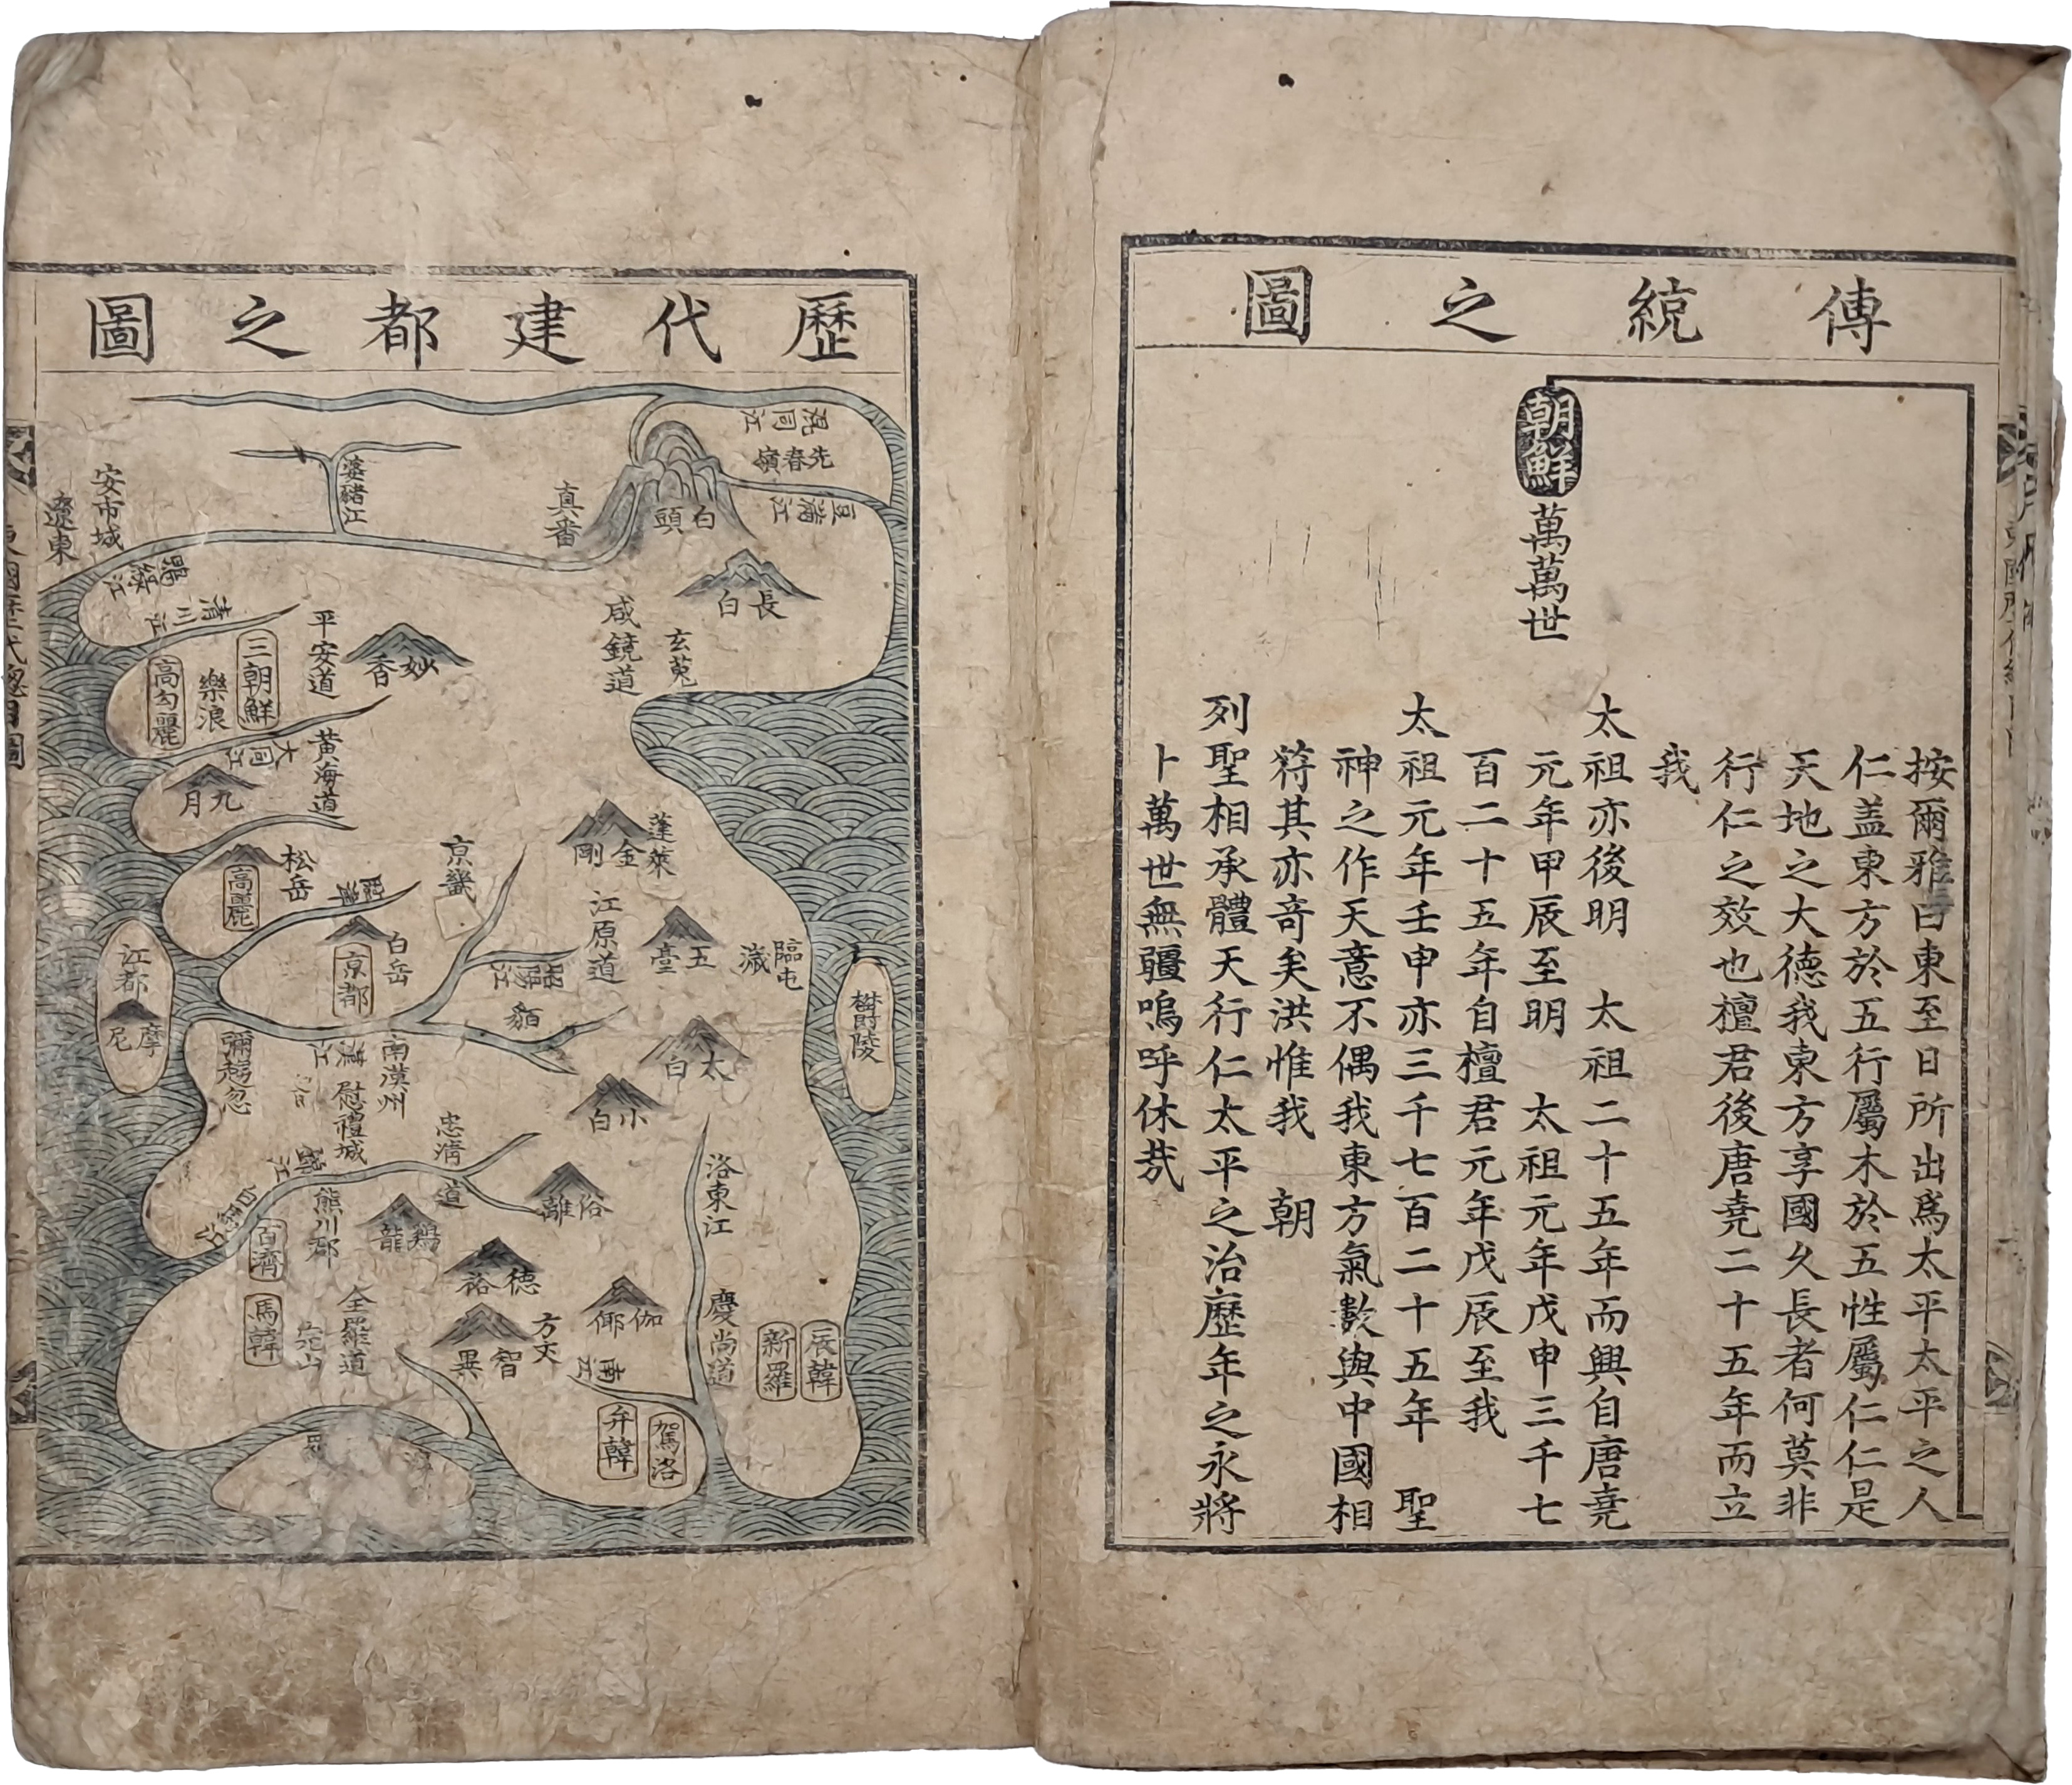 傳統之圖
朝鮮
萬萬世
按爾雅曰東至日所出爲太平太平之人
仁盖東方於五行屬木於五性屬仁仁是
天地之大德我東方享國久長者何莫非
行仁之效也檀君後唐堯二十五年而立
我
太祖亦後明 太祖二十五年而興自唐堯
元年甲辰至明 太祖元年戊申三千七
百二十五年自檀君元年戊辰至我
太祖元年壬申亦三千七百二十五年 聖
神之作天意不偶我東方氣數與中國相
符其亦奇矣洪惟我 朝
列聖相承體天行仁太平之治歷年之永將
卜萬世無疆嗚呼休哉
歷代建都之圖
混同江
先春嶺
豆滿江
白頭
長白
真番
婆豬江
安市城
遼東
鴨綠江
清川江
平安道
妙香
咸鏡道
玄菟
三朝鮮
樂浪
高勾麗
大同江
黃海道
九月
松岳
高麗
京畿
蓬萊
金剛
江原道
五臺
臨屯
濊
欝陵
白岳
京都
江都
摩尼
貊
太白
小白
南漢州
漢江
慰禮城
彌趨忽
忠清道
熊川郡
百濟
馬韓
鷄龍
俗離
洛東江
德裕
智異
方丈
伽倻
全羅道
慶尚道
辰韓
新羅
弁韓
駕洛